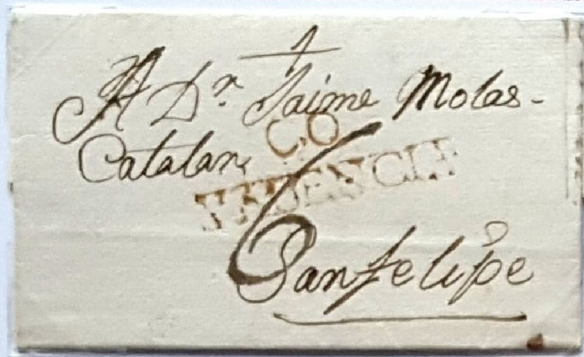 A Dn. Jaime Molas-
Catalan
CO
VALENCIA
6
Sanfelipe